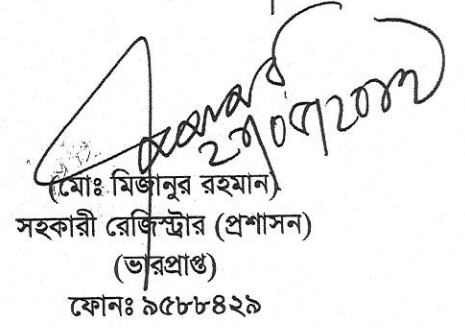 (মোঃ মিজানুর রহমান)
সহকারী রেজিস্ট্রার (প্রশাসন)
(ভারপ্রাপ্ত)
ফোনঃ ৯৫৮৮৪২৯